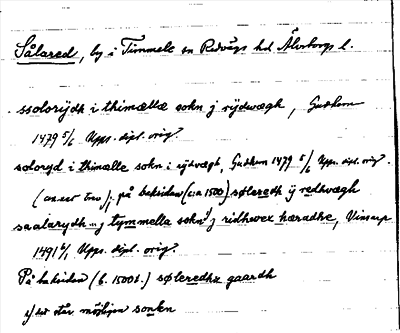 Sålared, by i Timmele sn Redvägs hd Älvsborgs l.
ssolorydh i thimællæ sokn j rydwægh, Gudhem
1479 5/6 Upps. dipl. orig.
soloryd i thimælle sokn i rydvægh, Gudhem 1479 5/6 Upps. dipl. orig.
på baksidan (c:a 1500) søleredh ÿ redhwegh
saalarydh j tymmella sokn j ridhevex hæradhe, Vinsarp
1491 6/1 Upps. dipl. orig.
På baksidan (b. 1500t.) søleredhx gaardh
1) det står möjligen sonkn